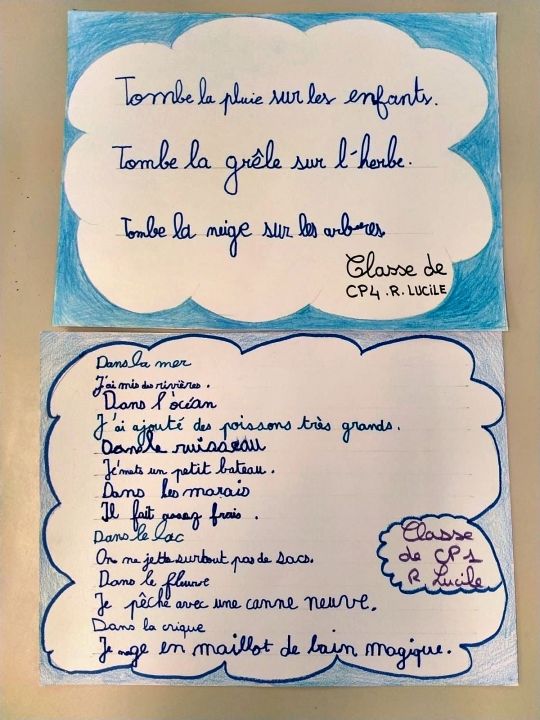 Tombe la pluie sur les enfants.
Tombe la grêle sur l'herbe.
Tombe la neige sur les arbres.
Classe de
CP4.R.LUCILE
Dans la mer
J'ai mis des rivières.
Dans l'océan
J'ai ajouté des poissons très grands.
Dans le ruisseau
Je mets un petit bateau.
Dans les marais
Il fait assez frais.
Dans le lac
On ne jette surtout pas de sacs.
Dans le fleuve
Je pêche avec une canne neuve.
Dans la crique
Je nage en maillot de bain magique.
Classe
de CP1
R. Lucile